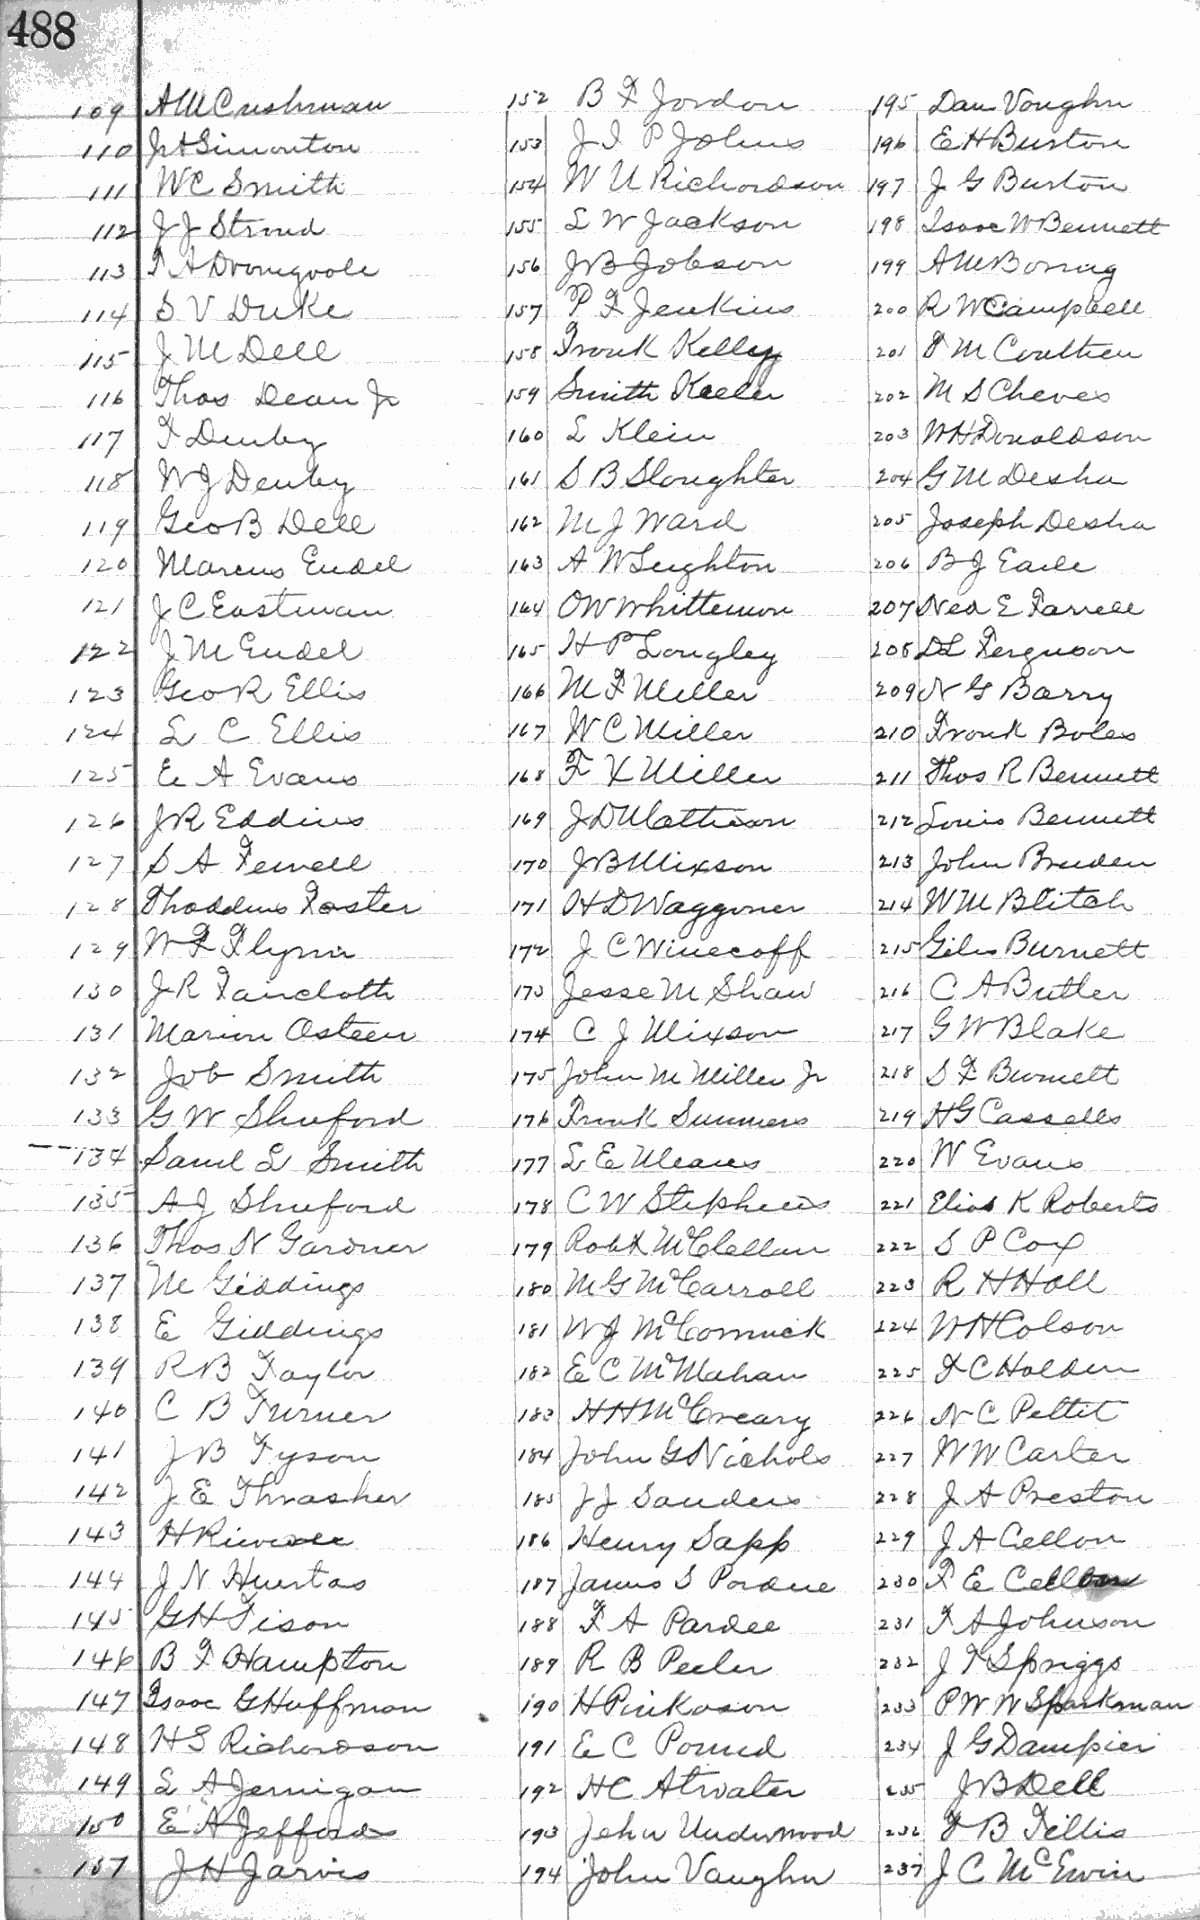 488
109 A M Cushman
110 J A Simonton
111 W C Smith
112 J J Stroud
113 F A Dromgoole
114 S V Duke
115 J M Dell
116 Thos Dean Jr
117 F Denby
118 W J Denby
119 Geo B Dell
120 Marcus Endel
121 J C Eastman
122 J M Endel
123 Geo R Ellis
124 L C Ellis
125 E A Evans
126 J R Eddins
127 S A Fewell
128 Thaddeus Foster
129 W F Flynn
130 J R Faircloth
131 Marion Osteen
132 Job Smith
133 G W Shuford
134 Saml L Smith
135 A J Shuford
136 Thos N Gardner
137 M Giddings
138 E Giddings
139 R B Taylor
140 C B Turner
141 J B Tyson
142 J E Thrasher
143 H
144 J N Huertas
145 G H Tison
146 B F Hampton
147 Isaac G Huffman
148 H S Richardson
149 L A Jernigan
150 E A Jeffords
157 J H Jarvis
152 B F Jordon
153 J I P Johns
154 W U Richardson
155 L W Jackson
156 J B Jobson
157 P F Jenkins
158 Frank Kelley
159 Smith Keeler
160 L Klein
161 S B Slaughter
162 M J Ward
163 A W Leighton
164 O W Whittemore
165 H P Longley
166 M F Miller
167 W C Miller
168 F X Miller
169 J D Matheson
170 J B Mixson
171 H D Waggoner
172 J C Winecoff
173 Jesse M Shaw
174 C J Mixson
175 John M Miller Jr
176 Frank Summers
177 L E Means
178 C W Stephens
179 Robt McClellan
180 M G McCarroll
181 W J McCormick
182 E C McMahan
183 H H McCreary
184 John G Nichols
185 J J Sanders
186 Henry Sapp
187 James S Perdue
188 F A Pardee
189 R B Peeler
190 H Pinkoson
191 E C Pound
192 H C Atwater
193 John Underwood
194 John Vaughn
195 Dan Vaughn
196 E H Burton
197 J G Burton
198 Isaac W Bennett
199 A M Boring
200 R W Campbell
201 F M Coulthen
202 M S Cheves
203 W H Donaldson
204 G M Desha
205 Joseph Desha
206 B J Earle
207 Ned E Farrell
208 D L Ferguson
209 N G Barry
210 Frank Boles
211 Thos R Bennett
212 Louis Bennett
213 John Breeden
214 W M Blitch
215 Giles Burnett
216 C A Butler
217 G W Blake
218 S F Burnett
219 H G Cassells
220 W Evans
221 Elias K Roberts
222 S P Cox
223 R H Hall
224 W H Colson
225 F C Holden
226 N C Pettit
227 W W Carter
228 J A Preston
229 J A Cellon
230 F E Cellon
231 F A Johnson
232 J F Spriggs
233 P W W Sparkman
234 J G Dampier
235 J B Dell
236 F B Tillis
237 J C McEwin